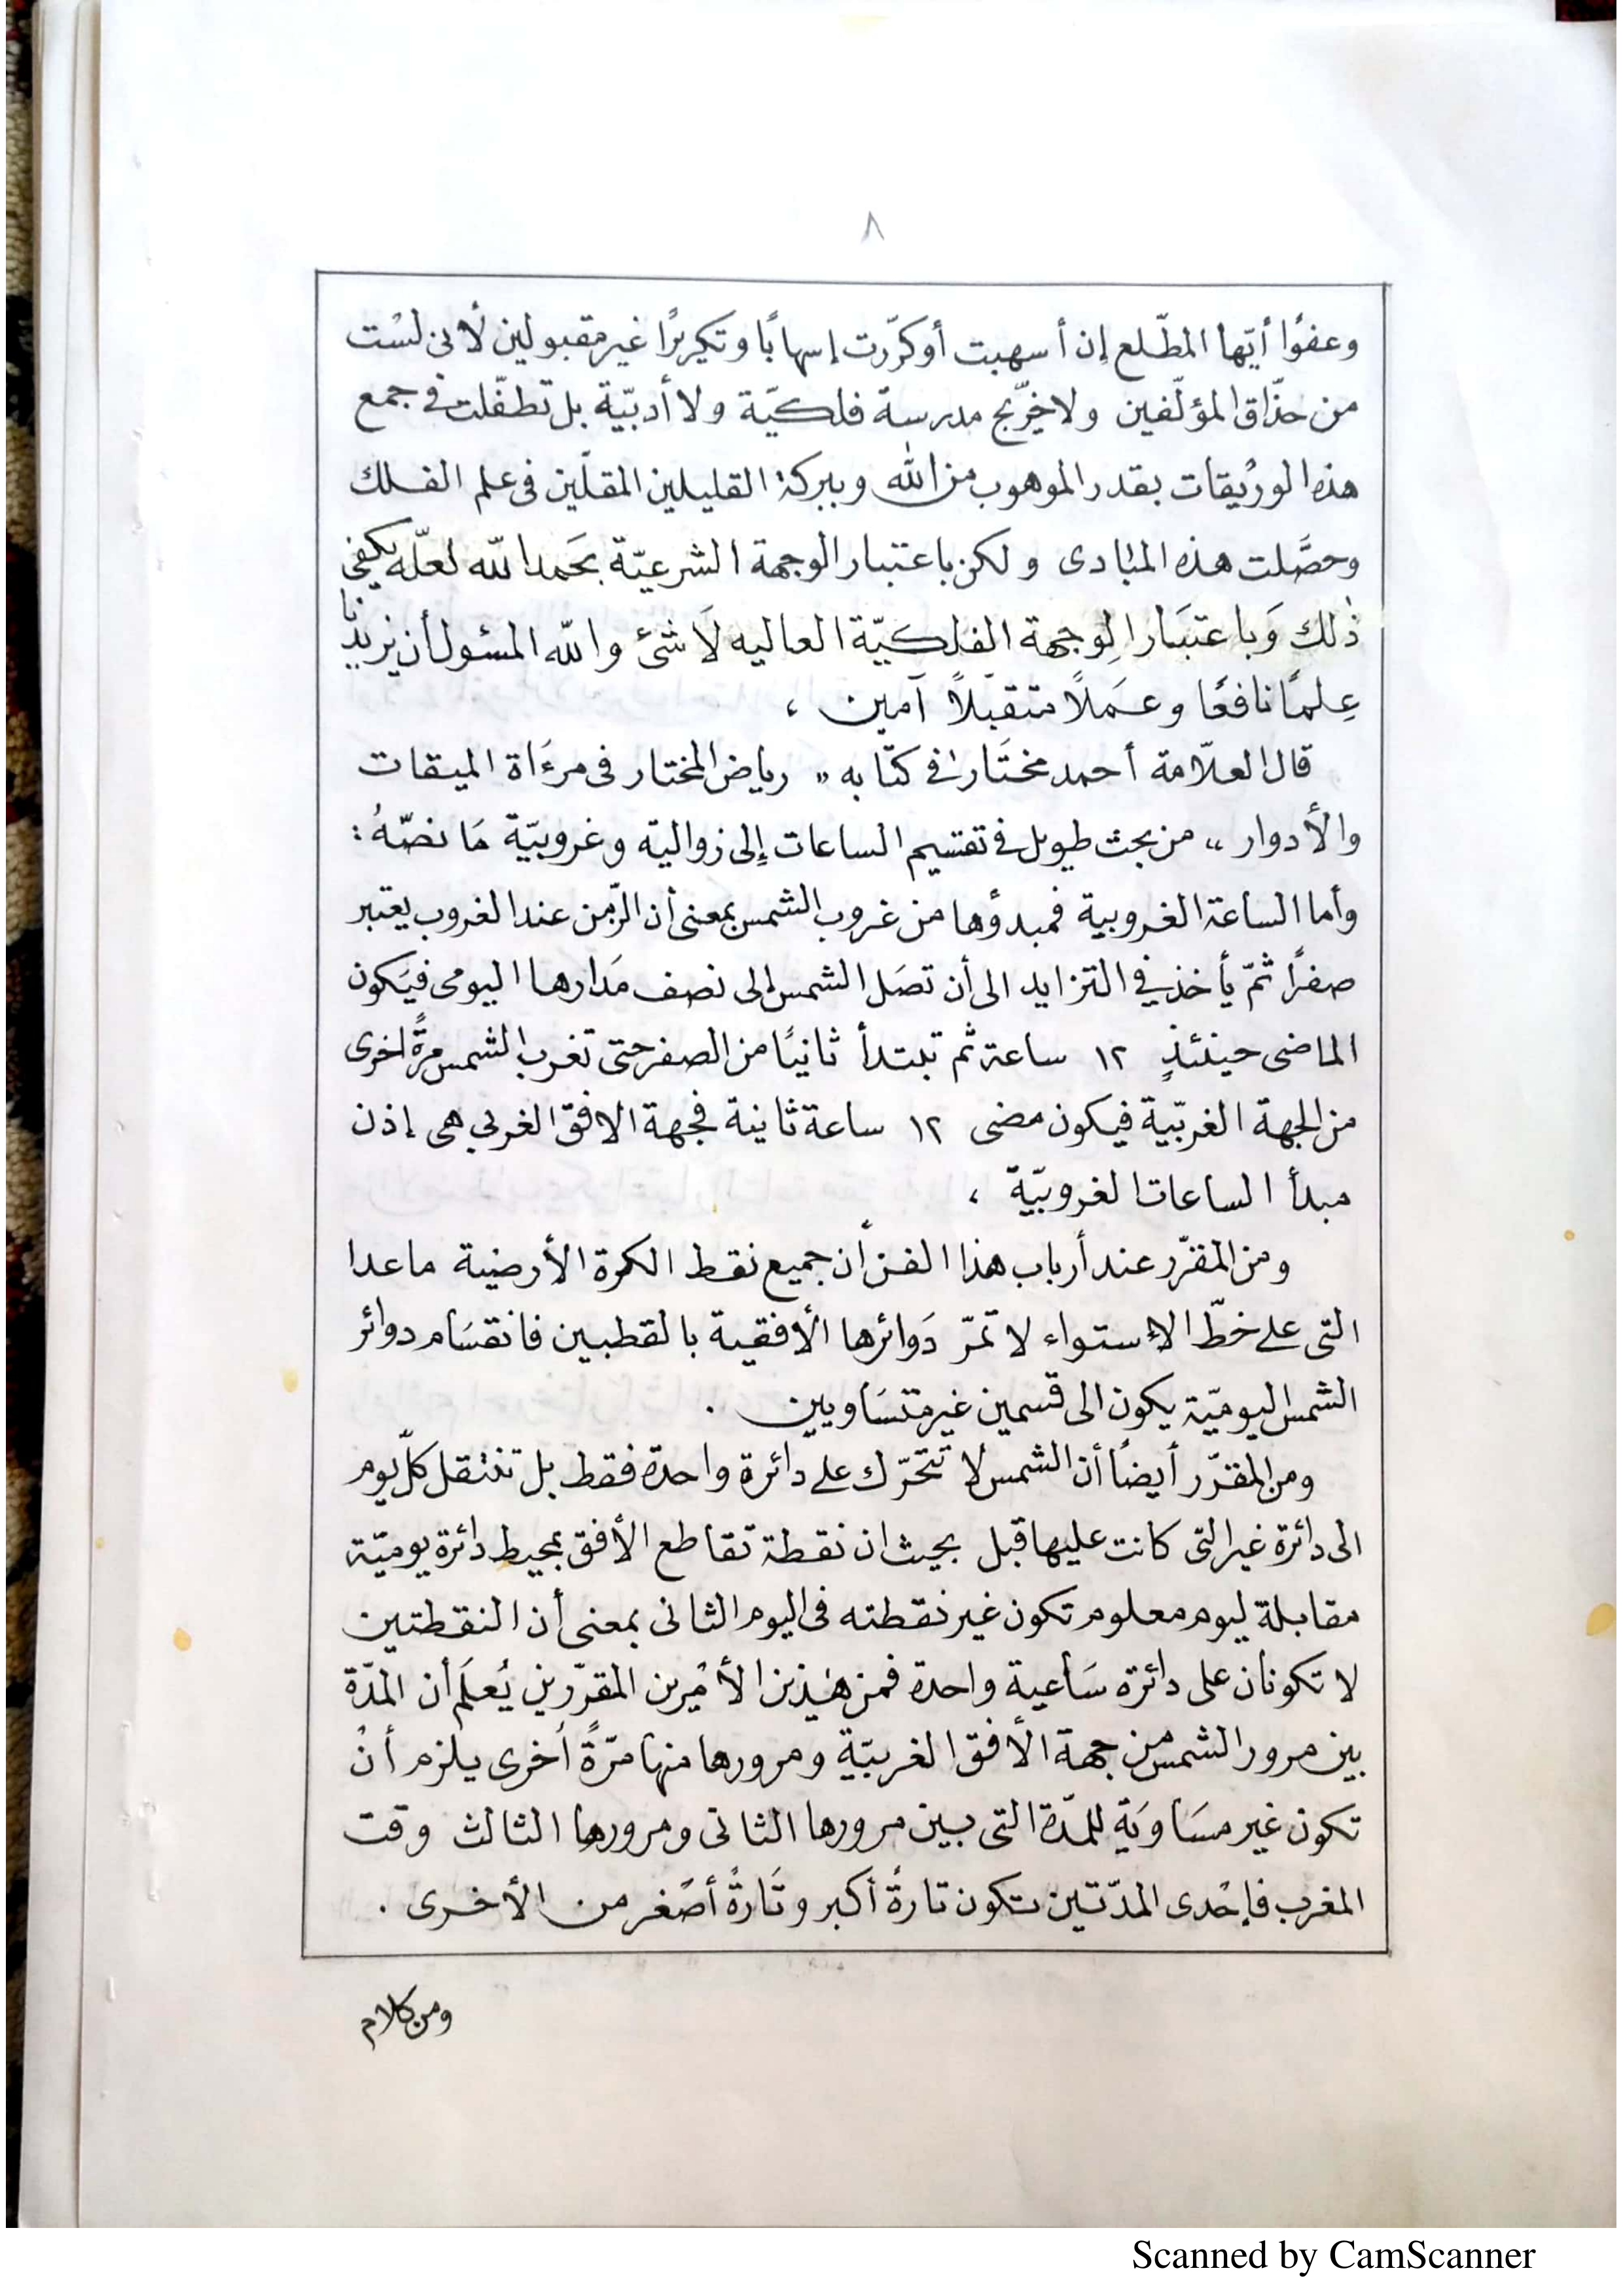 ٨
وعفوًا أيّها المطّلع إن أسهبت أو كرّرت إسهابًا وتكريرًا غير مقبولين لأنى لسْت
من حذّاق المؤلّفين ولا خرّيج مدرسة فلكيّة ولا أدبيّة بل تطفّلت فى جمع
هذه الورُيقات بقدر الموهوب من الله وببركة القليلين المقلّين فى علم الفلك
وحصَّلت هذه المبادى ولكن باعتبار الوجهة الشرعيّة بحَمد الله لعلّه يكفى
ذٰلك وَباعتبَار الوِجهة الفلكيّة العاليه لَا شىْئ والله المسئول أن يزيدنا
عِلمًا نافعًا وعَملًا متقبّلًا آمين ،
قال العلّامة أحمد مختَار فى كتَابه " رياض المختار فى مرءَاة الميقات
والأدوار " من بحث طويل فى تقسيم الساعات إلى زوالية وغروبيّة مَا نصّهُ :
وأما الساعة الغروبية فمبدؤها من غروب الشمس بمعنى أن الزّمن عند الغروب يعتبر
صفرًا ثمّ يأخذ فى التزايد الى أن تصَل الشمس إلى نصف مَدارها اليومى فيَكون
الماضى حينئذٍ ١٢ ساعة ثم تبتدأ ثانيًا من الصفر حتى تغرب الشمس مرةً اخرى
من الجهة الغربّية فيكون مضى ١٢ ساعة ثانية فجهة الافق الغربي هى إذن
مبدأ الساعات الغروبيّة ،
ومن المقرّر عند أرباب هذا الفن أن جميع نقط الكرة الأرضية ماعدا
التى على خطّ الإستواء لا تمرّ دَوائرها الأفقية بالقطبين فانقسَام دوائر
الشمس اليوميّة يكون الى قسمين غير متسَاويين .
ومن المقرّر أيضًا أن الشمس لا تتحرّك على دائرة واحدة فقط بل تنتقل كلّ يوم
الى دائرة غير التى كانت عليها قبل بحيث ان نقطة تقاطع الأفق بمحيط دائرة يوميّة
مقابلة ليوم معلوم تكون غير نقطته فى اليوم الثانى بمعنى أن النقطتين
لا تكونان على دائرة سَاعية واحدة فمن هٰذين الأمْرين المقرّرين يُعلَم أن المدّة
بين مرور الشمس من جهة الأفق الغربيّة ومرورها منها مرّةً اُخرى يلزم أنْ
تكون غير مسَاوَيَة للمدّة التى بين مرورها الثانى ومرورها الثالث وقت
المغرب فإحْدى المدّتين تكون تارةً أكبر وتَارةً أصْغر من الأخرى .
ومن كلام
Scanned by CamScanner